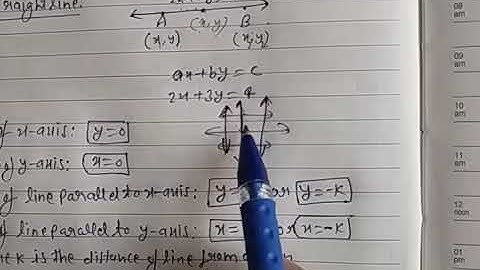 raight line.
A B
(x,y) (x,y) (x,y)
ax+by=c
2x+3y=4
of x-axis: y=0
of y-axis: x=0
of line parallel to x-axis: y= or y=-k
of line parallel to y-axis: x= or x=-k
k is the distance of line from
09
am
10
am
11
am
12
noon
01
pm